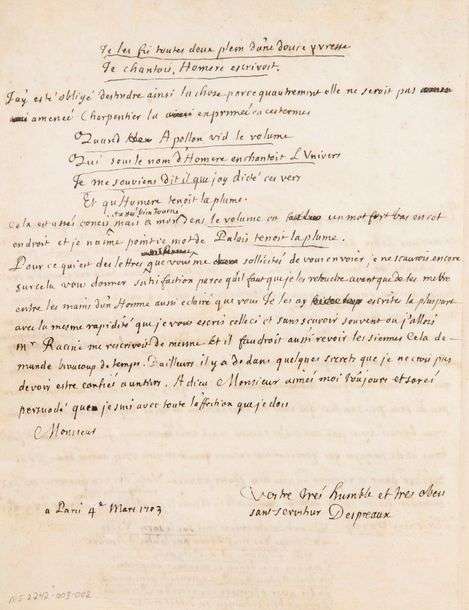 Je les fis toutes deux plein d'une douce yvresse
Je chantois, Homere escrivoit.
J'ay esté obligé d'estendre ainsi la chose parce qu'autrement elle ne seroit pas
amenée Charpentier la exprimée en ces termes
Quand Apollon vid le volume
Qui sous le nom d'Homere enchantoit L'Univers
Je me souviens dit il que j'ay dicté ces vers
Et qu'Homere tenoit la plume.
Cela est assés concis et assés bien tourné mais à mon sens le volume est un mot fort bas en cet
endroit et je n'aime point ce mot de Palais tenoit la plume.
Pour ce qui est des lettres que vous me sollicités de vous envoier, je ne scaurois encore
sur cela vous donner satisfaction parce qu'il faut que je les retouche avant que de les mettre
entre les mains d'un Homme aussi eclairé que vous Je les ay escrites la pluspart
avec la mesme rapidité que je vous escris celleci et sans scavoir souvent ou j'allois
Mr Racine me rescrivoit de mesme et il faudroit aussi revoir les siennes Cela de-
mande beaucoup de temps. D'ailleurs il y a dedans quelques secrets que je ne crois pas
devoir estre confiés a un tiers. Adieu Monsieur aimés moi toujours et soiés
persuadé que je suis avec toute l'affection que je dois
Monsieur
Vostre tres humble et tres obeis
sant serviteur Despreaux
a Paris 4e Mars 1703
MS 2242-003-002